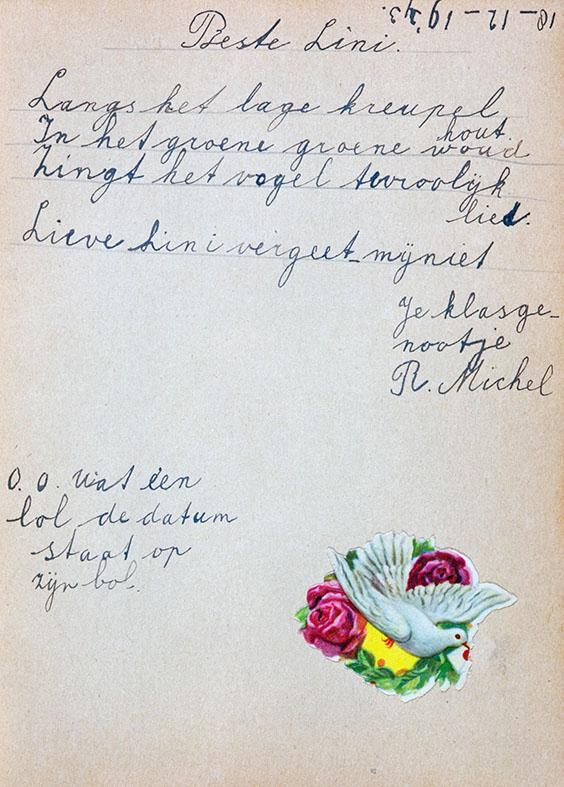 18-12-1943.
Beste Lini.
Langs het lage kreupel
hout.
In het groene groene woud
Zingt het vogeltje vroolijk
lied.
Lieve Lini vergeet-mijniet
Je klasge-
nootje
R. Michel
O. O. wat één
lol de datum
staat op
zijn bol.